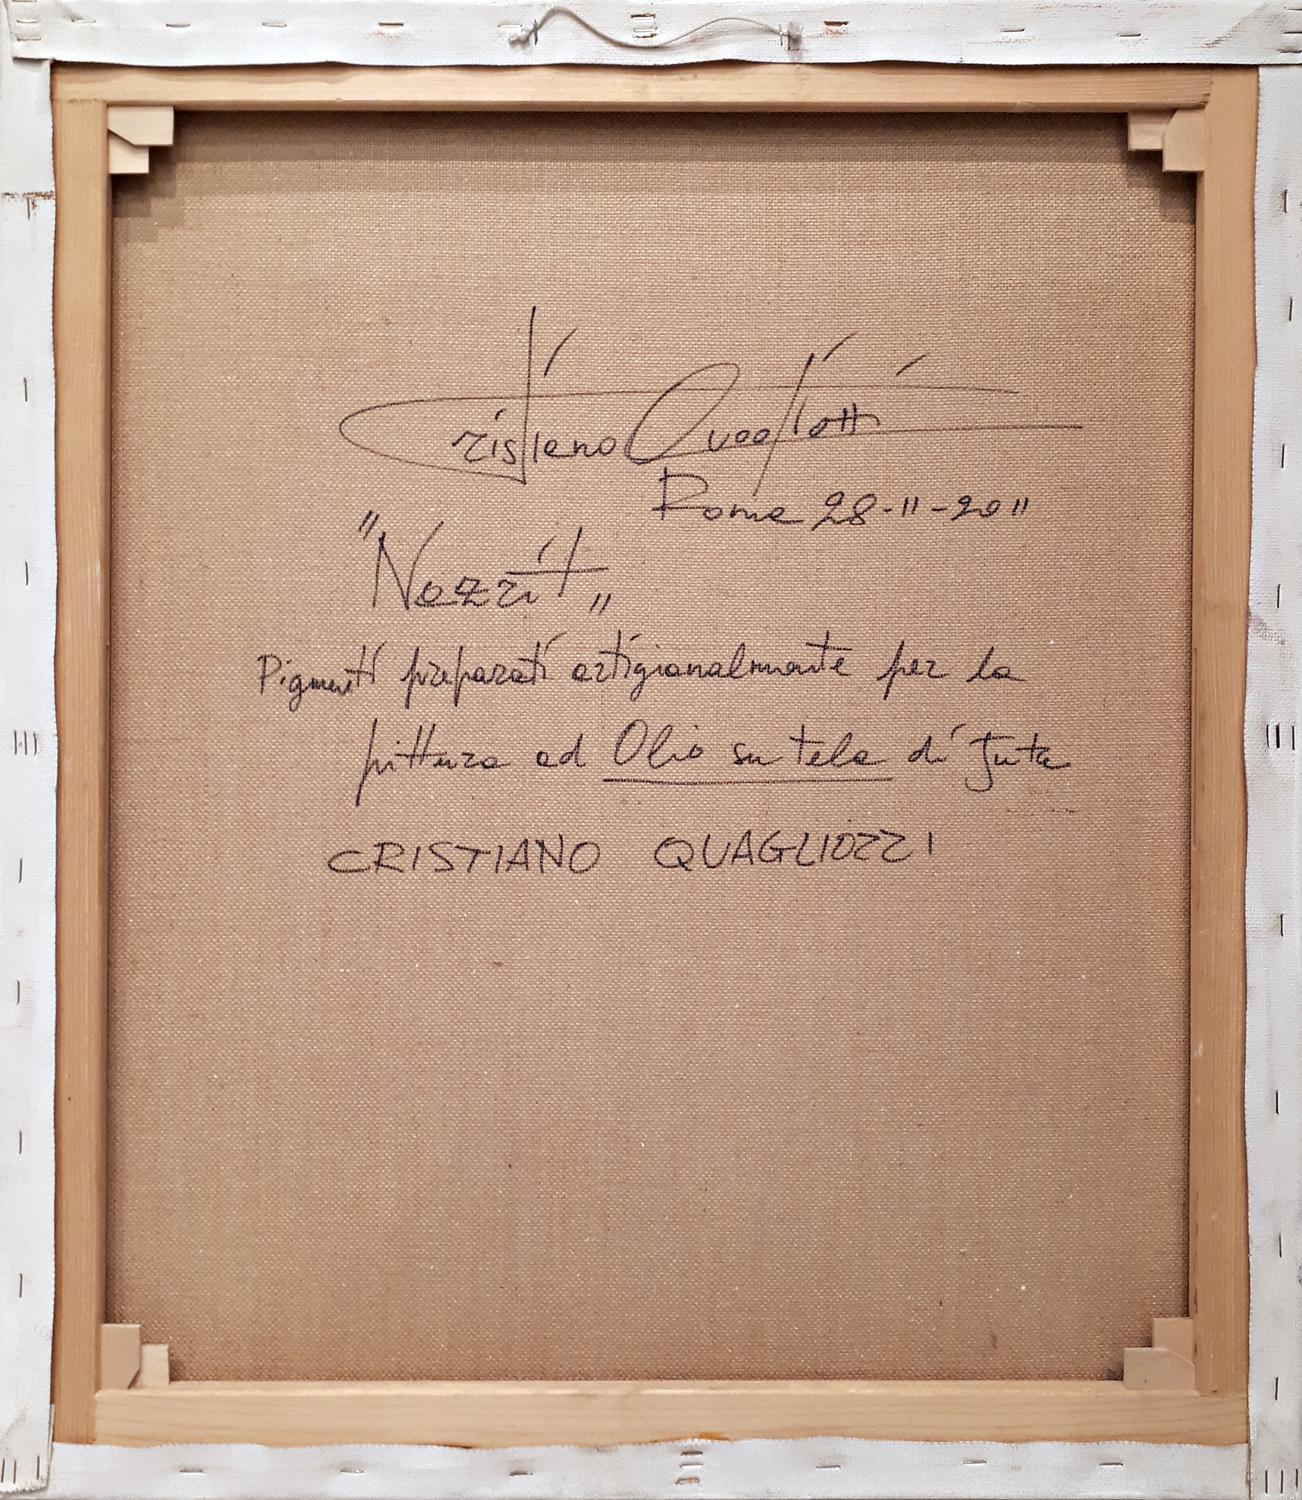 Cristiano Quagliozzi
Roma 28-11-2011
"Nozzit"
Pigmenti preparati artigianalmente per la
pittura ad Olio su tela di Juta
CRISTIANO QUAGLIOZZI